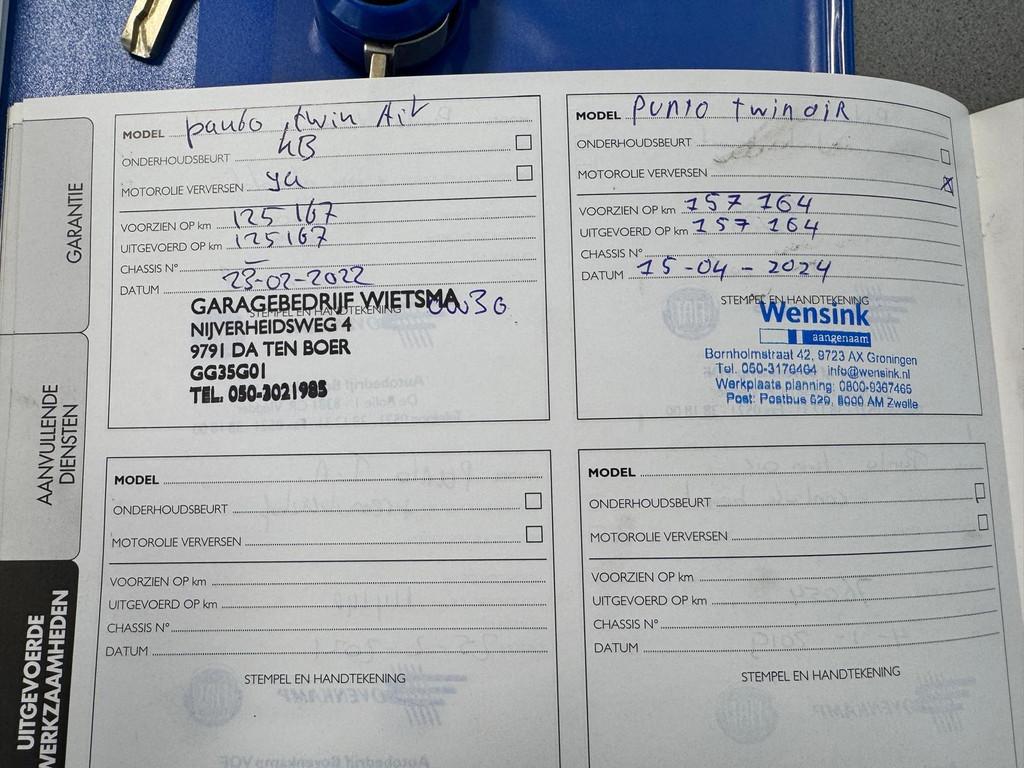 GARANTIE
AANVULLENDE
DIENSTEN
UITGEVOERDE
WERKZAAMHEDEN
MODEL punto twin Air
ONDERHOUDSBEURT KB
MOTOROLIE VERVERSEN ya
VOORZIEN OP km 125 167
UITGEVOERD OP km 125167
CHASSIS N° –
DATUM 23-02-2022
STEMPEL EN HANDTEKENING
GARAGEBEDRIJF WIETSMA 0W30
NIJVERHEIDSWEG 4
9791 DA TEN BOER
GG35G01
TEL. 050-3021985
MODEL PUNTO twin aiR
ONDERHOUDSBEURT
MOTOROLIE VERVERSEN X
VOORZIEN OP km 157 164
UITGEVOERD OP km 157 164
CHASSIS N°
DATUM 15-04-2024
STEMPEL EN HANDTEKENING
Wensink
aangenaam
Bornholmstraat 42, 9723 AX Groningen
Tel. 050-3176464 info@wensink.nl
Werkplaats planning: 0800-9367465
Post: Postbus 629, 8000 AM Zwolle
MODEL
ONDERHOUDSBEURT
MOTOROLIE VERVERSEN
VOORZIEN OP km
UITGEVOERD OP km
CHASSIS N°
DATUM
STEMPEL EN HANDTEKENING
MODEL
ONDERHOUDSBEURT
MOTOROLIE VERVERSEN
VOORZIEN OP km
UITGEVOERD OP km
CHASSIS N°
DATUM
STEMPEL EN HANDTEKENING